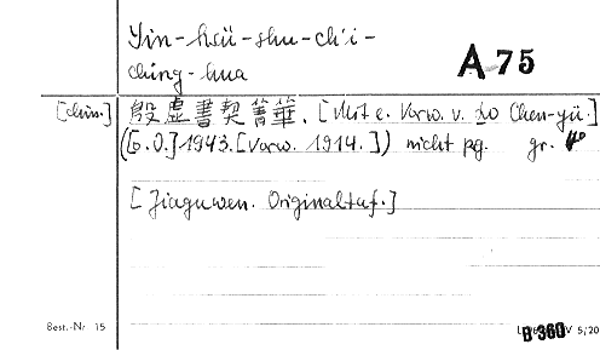 Yin-hsü-shu-ch'i-
ching-hua
A-75
[chin.] 殷虛書契菁華. [Mit e. Vorw. v. Lo Chen-yü.]
([o. O.] 1943. [Vorw. 1914.]) nicht pg. gr. 4°
[Jiaguwen. Originaltaf.]
Best.-Nr 15
B 360 V 5/20